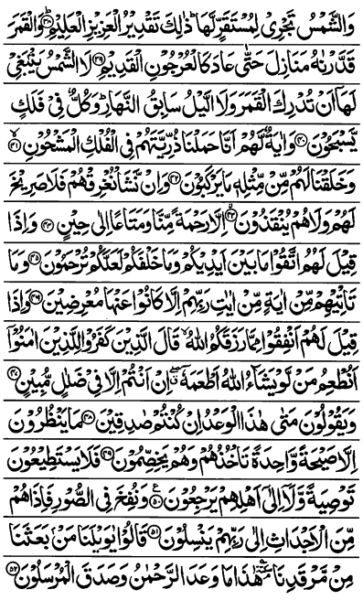 وَالشَّمْسُ تَجْرِىْ لِمُسْتَقَرٍّ لَّهَا ؕ ذٰلِكَ تَقْدِيْرُ الْعَزِيْزِ الْعَلِيْمِ ۞ؕ۳۸ وَالْقَمَرَ
قَدَّرْنٰهُ مَنَازِلَ حَتّٰى عَادَ كَالْعُرْجُوْنِ الْقَدِيْمِ ۞۳۹ لَا الشَّمْسُ يَنْۢبَغِىْ
لَهَاۤ اَنْ تُدْرِكَ الْقَمَرَ وَلَا الَّيْلُ سَابِقُ النَّهَارِ ؕ وَكُلٌّ فِىْ فَلَكٍ
يَّسْبَحُوْنَ ۞۴۰ وَاٰيَةٌ لَّهُمْ اَنَّا حَمَلْنَا ذُرِّيَّتَهُمْ فِى الْفُلْكِ الْمَشْحُوْنِ ۞ۙ۴۱
وَخَلَقْنَا لَهُمْ مِّنْ مِّثْلِهٖ مَا يَرْكَبُوْنَ ۞۴۲ وَاِنْ نَّشَاْ نُغْرِقْهُمْ فَلَا صَرِيْخَ
لَهُمْ وَلَا هُمْ يُنْقَذُوْنَ ۞ۙ۴۳ اِلَّا رَحْمَةً مِّنَّا وَمَتَاعًا اِلٰى حِيْنٍ ۞۴۴ وَاِذَا
قِيْلَ لَهُمُ اتَّقُوْا مَا بَيْنَ اَيْدِيْكُمْ وَمَا خَلْفَكُمْ لَعَلَّكُمْ تُرْحَمُوْنَ ۞۴۵ وَمَا
تَاْتِيْهِمْ مِّنْ اٰيَةٍ مِّنْ اٰيٰتِ رَبِّهِمْ اِلَّا كَانُوْا عَنْهَا مُعْرِضِيْنَ ۞۴۶ وَاِذَا
قِيْلَ لَهُمْ اَنْفِقُوْا مِمَّا رَزَقَكُمُ اللّٰهُ ۙ قَالَ الَّذِيْنَ كَفَرُوْا لِلَّذِيْنَ اٰمَنُوْۤا
اَنُطْعِمُ مَنْ لَّوْ يَشَآءُ اللّٰهُ اَطْعَمَهٗۤ ۖ اِنْ اَنْتُمْ اِلَّا فِىْ ضَلٰلٍ مُّبِيْنٍ ۞۴۷
وَيَقُوْلُوْنَ مَتٰى هٰذَا الْوَعْدُ اِنْ كُنْتُمْ صٰدِقِيْنَ ۞۴۸ مَا يَنْظُرُوْنَ
اِلَّا صَيْحَةً وَّاحِدَةً تَاْخُذُهُمْ وَهُمْ يَخِصِّمُوْنَ ۞۴۹ فَلَا يَسْتَطِيْعُوْنَ
تَوْصِيَةً وَّلَاۤ اِلٰٓى اَهْلِهِمْ يَرْجِعُوْنَ ۞۵۰ وَنُفِخَ فِى الصُّوْرِ فَاِذَا هُمْ
مِّنَ الْاَجْدَاثِ اِلٰى رَبِّهِمْ يَنْسِلُوْنَ ۞۵۱ قَالُوْا يٰوَيْلَنَا مَنْۢ بَعَثَنَا
مِنْ مَّرْقَدِنَا ۘؐ هٰذَا مَا وَعَدَ الرَّحْمٰنُ وَصَدَقَ الْمُرْسَلُوْنَ ۞۵۲